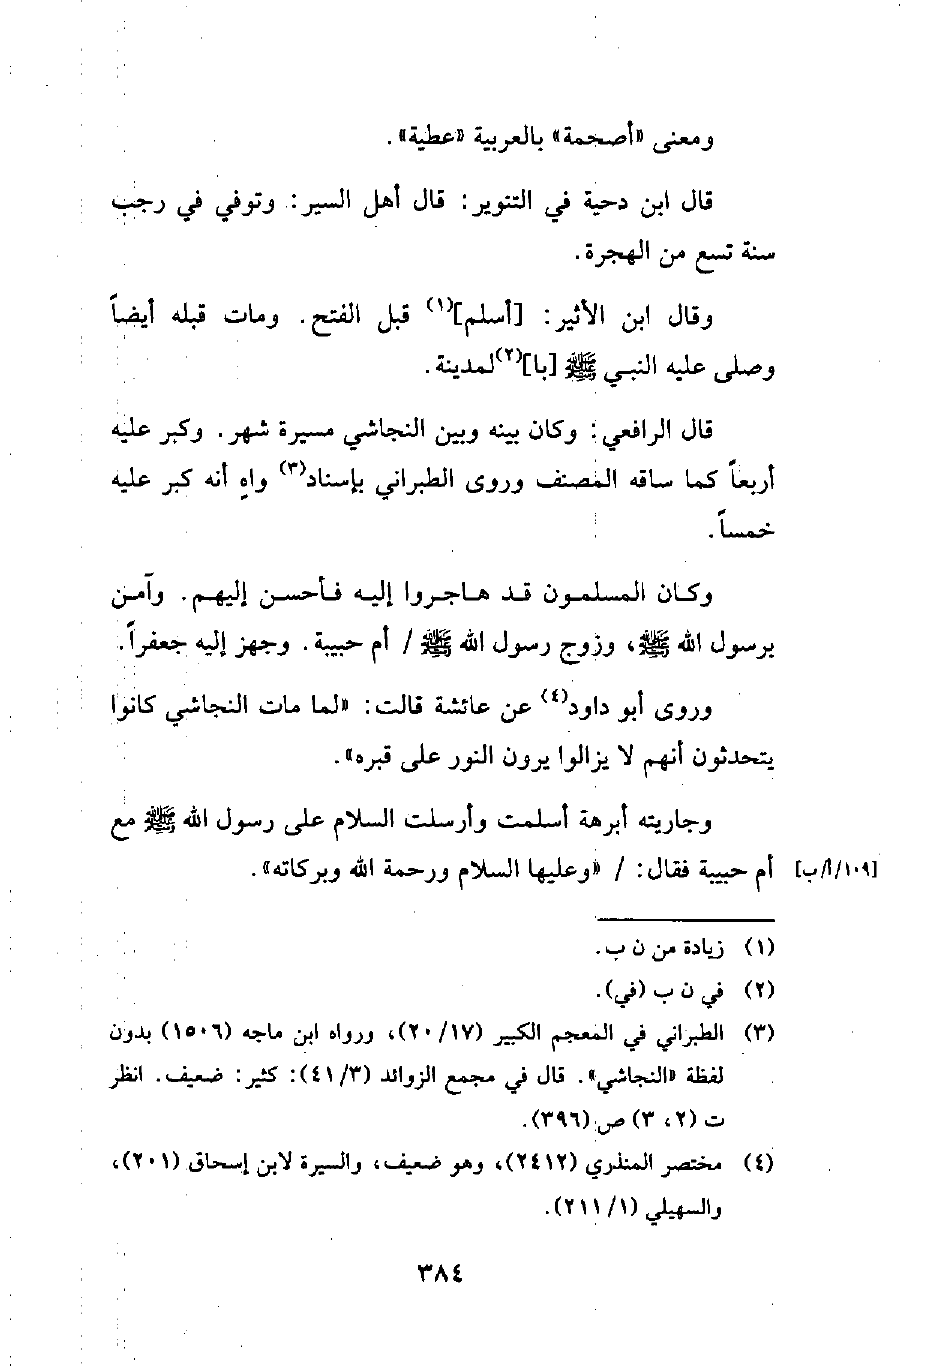 ومعنى «أصحمة» بالعربية «عطية».
قال ابن دحية في التنوير: قال أهل السير: وتوفي في رجب
سنة تسع من الهجرة.
وقال ابن الأثير: [أسلم](١) قبل الفتح. ومات قبله أيضاً
وصلى عليه النبي ﷺ [با](٢)لمدينة.
قال الرافعي: وكان بينه وبين النجاشي مسيرة شهر. وكبر عليه
أربعاً كما ساقه المصنف وروى الطبراني بإسناد(٣) واهٍ أنه كبر عليه
خمساً.
وكان المسلمون قد هاجروا إليه فأحسن إليهم. وآمن
برسول الله ﷺ، وزوج رسول الله ﷺ / أم حبيبة. وجهز إليه جعفراً.
وروى أبو داود(٤) عن عائشة قالت: «لما مات النجاشي كانوا
يتحدثون أنهم لا يزالوا يرون النور على قبره».
وجاريته أبرهة أسلمت وأرسلت السلام على رسول الله ﷺ مع
[١٠٩/أ/ب] أم حبيبة فقال: / «وعليها السلام ورحمة الله وبركاته».
(١) زيادة من ن ب.
(٢) في ن ب (في).
(٣) الطبراني في المعجم الكبير (٢٠/١٧)، ورواه ابن ماجه (١٥٠٦) بدون
لفظة «النجاشي». قال في مجمع الزوائد (٤١/٣): كثير: ضعيف. انظر
ت (٢، ٣) ص (٣٩٦).
(٤) مختصر المنذري (٢٤١٢)، وهو ضعيف، والسيرة لابن إسحاق (٢٠١)،
والسهيلي (٢١١/١).
٣٨٤